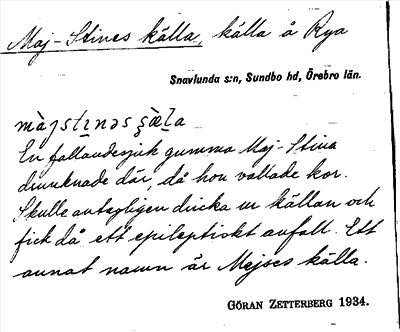 Maj-Stines källa, källa å Rya
Snavlunda s:n, Sundbo hd, Örebro län.
màjstị̄nəs ʂæ̀ḷa
En fallandesjuk gumma Maj-Stina
drunknade där, då hon vallade kor.
Skulle antagligen dricka ur källan och
fick då ett epileptiskt anfall. Ett
annat namn är Mejses källa.
GÖRAN ZETTERBERG 1934.